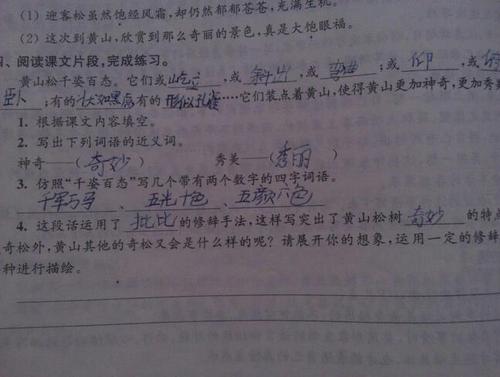 (1) 迎客松虽然饱经风霜,却仍然郁郁苍苍,充满生机。
(2) 这次到黄山,欣赏到那么奇丽的景色,真是大饱眼福。
、阅读课文片段,完成练习。
黄山松千姿百态。它们或屹立,或斜出,或弯曲;或仰,或
卧;有的状如黑虎有的形似孔雀……它们装点着黄山,使得黄山更加神奇,更加秀
1. 根据课文内容填空。
2. 写出下列词语的近义词。
神奇——(奇妙) 秀美——(秀丽)
3. 仿照“千姿百态”写几个带有两个数字的四字词语。
千军万马、五光十色、五颜六色
4. 这段话运用了排比的修辞手法,这样写突出了黄山松树奇妙的特点
奇松外,黄山其他的奇松又会是什么样的呢?请展开你的想象,运用一定的修辞
种进行描绘。